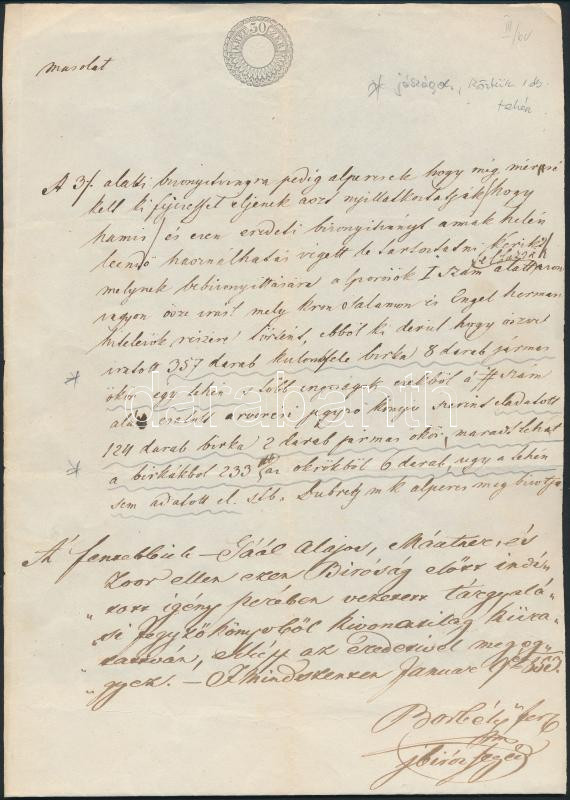 III/60
másolat
KÉT 30 SZER
jószágok, köztük 1 db
tehén
A 37. alatti bizonyitványra pedig alperesek hogy még
kell ki
hamis és ezen eredeti bizonyitványt annak helén
leendő használhatás végett le tartoztatni kérik
melynek bebizonyittására alperesek I szám alatt
vagyon össze irást mely Kron Salamon és Engel herman
hitelezők részére történt, ebből ki derül hogy össze
iratott 357 darab külonféle birka 8 darab jármas
ökör egy tehén s több ingóságok ezekből á # szám
alatt csatolt árverési jegyző könyv szerint eladatott
124 darab birka 2 darab jármas ökör, maradt tehát
a birkákból 233 az ökrökből 6 darab ugy a tehén
sem adatott el. stb. Dubretz mk alperes meg bizottja
darabanth
A' fentebbiek – Gaál Alajos, és
ellen ezen Biróság előtt indi-
tott igény perében vezetett tárgyalá-
si jegyzőkönyvből kivonatilag
az eredetivel megegy-
gyez. – T Mindszenten Januar 1853.
Borbély fer